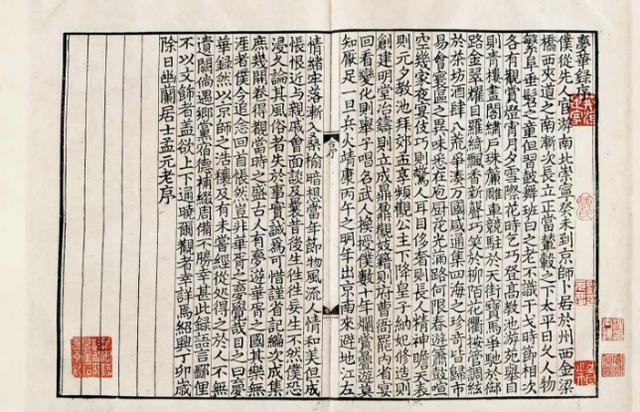 夢華錄序
僕從先人宦游南北崇寧癸未到京師卜居於州西金梁
橋西夾道之南漸次長立正當輦轂之下太平日久人物
繁阜垂髫之童但習鼓舞班白之老不識干戈時節相次
各有觀賞燈宵月夕雪際花時乞巧登高教池游苑舉目
則青樓畫閣繡戶珠簾雕車競駐於天街寶馬爭馳於御
路金翠耀目羅綺飄香新聲巧笑於柳陌花衢按管調絃
於茶坊酒肆八荒爭湊萬國咸通集四海之珍奇皆歸市
易會寰區之異味悉在庖廚花光滿路何限春遊簫鼓喧
空幾家夜宴伎巧則驚人耳目侈奢則長人精神瞻天表
則元夕教池拜郊孟享頻觀公主下降皇子納妃修造則
創建明堂冶鑄則立成鼎鼐觀妓籍則府曹衙罷內省宴
回看變化則舉子唱名武人換授僕數十年爛賞疊遊莫
知厭足一旦兵火靖康丙午之明年出京南來避地江左
序
情緒牢落漸入桑榆暗想當年節物風流人情和美但成
悵恨近與親戚會面談及曩昔後生往往妄生不然僕恐
浸久論其風俗者失於事實誠為可惜謹省記編次成集
庶幾開卷得觀當時之盛古人有夢遊華胥之國其樂無
涯者僕今追念回首悵然豈非華胥之夢覺哉目之曰夢
華錄然以京師之浩穰及有未嘗經從處得之於人不無
遺闕倘遇鄉黨宿德補綴周備不勝幸甚此錄語言鄙俚
不以文飾者蓋欲上下通曉爾觀者幸詳焉紹興丁卯歲
除日幽蘭居士孟元老序